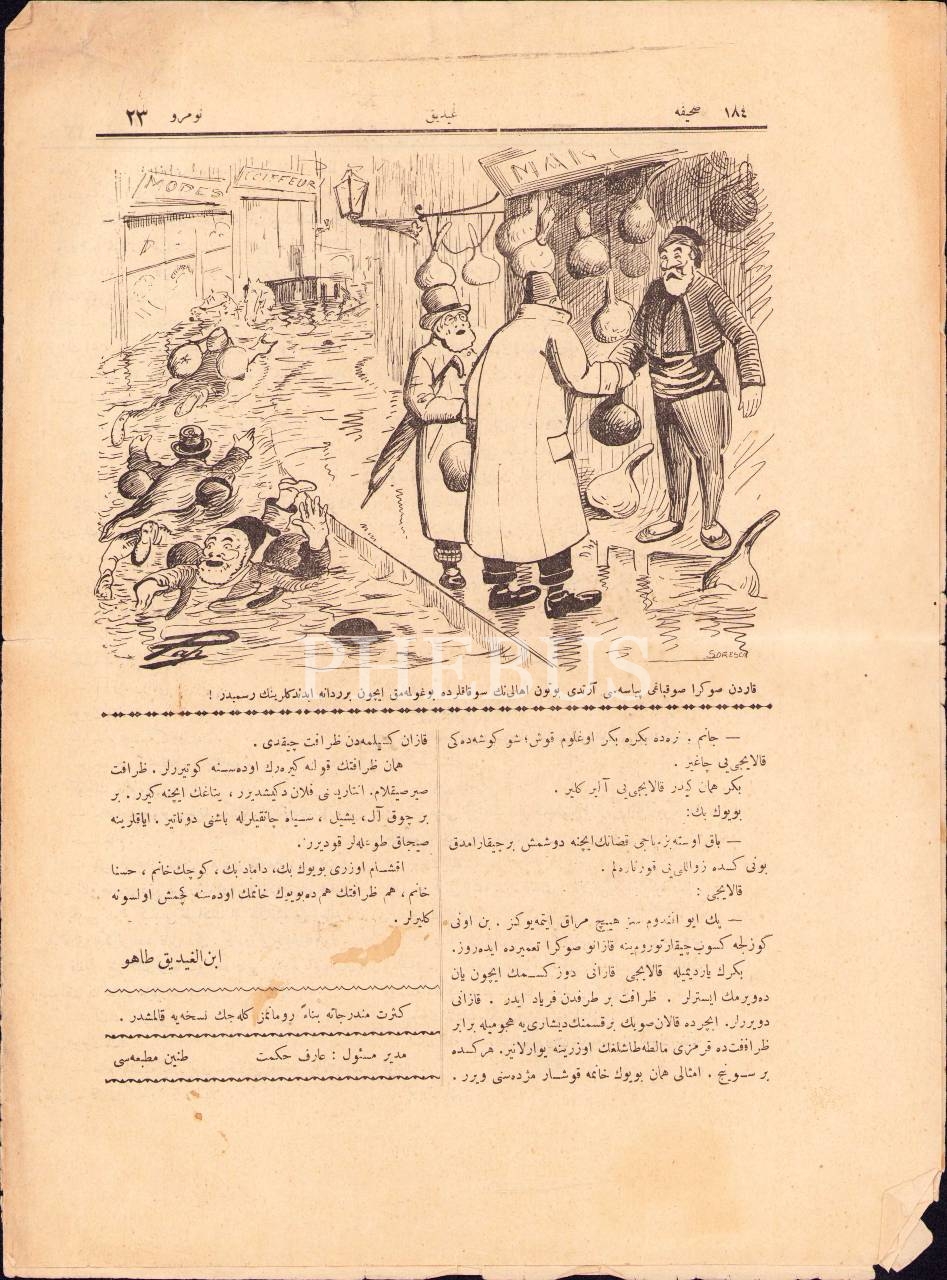 ١٨٤ صحیفه
غیدیق
نومرو ٢٣
MODES
COIFFEUR
MAN
Pap
SORESCO
PHEBUS
قاردن صوکرا صوقباغی پیاسه‌سی آرتدی بوتون اهالی‌نك سوقاقلرده بوغولمه‌مق ایچون برردانه ایدندکلرینك رسمیدر !
— جانم . نره‌ده بکره بکر اوغلوم قوش؛ شو کوشه‌ده‌کی
قالایجی‌یی چاغیر .
بکر همان کیدر قالایجی‌یی آلیر کلیر .
بویوك بك:
— باق اوسته بزم باجی قضانك‌ایچنه دوشمش بر چیقارامدق
بونی کسده زواللی‌یی قورتاره‌لم .
قالایجی :
— پك ایو افندوم سز هیچ مراق ایتمه‌یوکز . بن اونی
کوزلجه کسوب چیقارتورومینه قازانو صوکرا تعمیرده ایده‌روز.
بکرك یاردیمیله قالایجی قازانی دوز کسمك ایچون یان
ده‌ویرمك ایسترلر . ظرافت بر طرفدن فریاد ایدر . قازانی
دویررلر. ایچرده قالان‌صویك برقسمنك‌دیشاری‌یه هجومیله برابر
ظرافت‌ده قرمزی مالطه‌طاشلغك اوزرینه یوارلانیر. هرکسده
بر سوینج . امثالی همان بویوك خانمه قوشار مژده‌سنی ویرر .
قازان کسیلمه‌دن ظرافت چیقدی .
همان ظرافتك قولنه کیره‌رك اوده‌سنه کوتیررلر. ظرافت
صیرصیقلام. انتاریسنی فلان دکیشدیرر ، یتاغك ایچنه کیرر. بر
بر چوق آل، یشیل ، سیاه چاتقیلرله باشنی دوناتیر . ایاقلرینه
صیجاق طوغله‌لر قودیرر.
اقشام اوزری بویوك بك، داماد بك، کوچك‌خانم ، حسنا
خانم ، هم ظرافتك هم ده‌بویوك خانمك اوده‌سنه کچمش اولسونه
کلیرلر .
ابن‌الغیدیق طاهو
کثرت مندرجاته بناءً رومانمز کله‌جك نسخه‌یه قالمشدر .
مدیر مسئول : عارف حکمت
طنین مطبعه‌سی